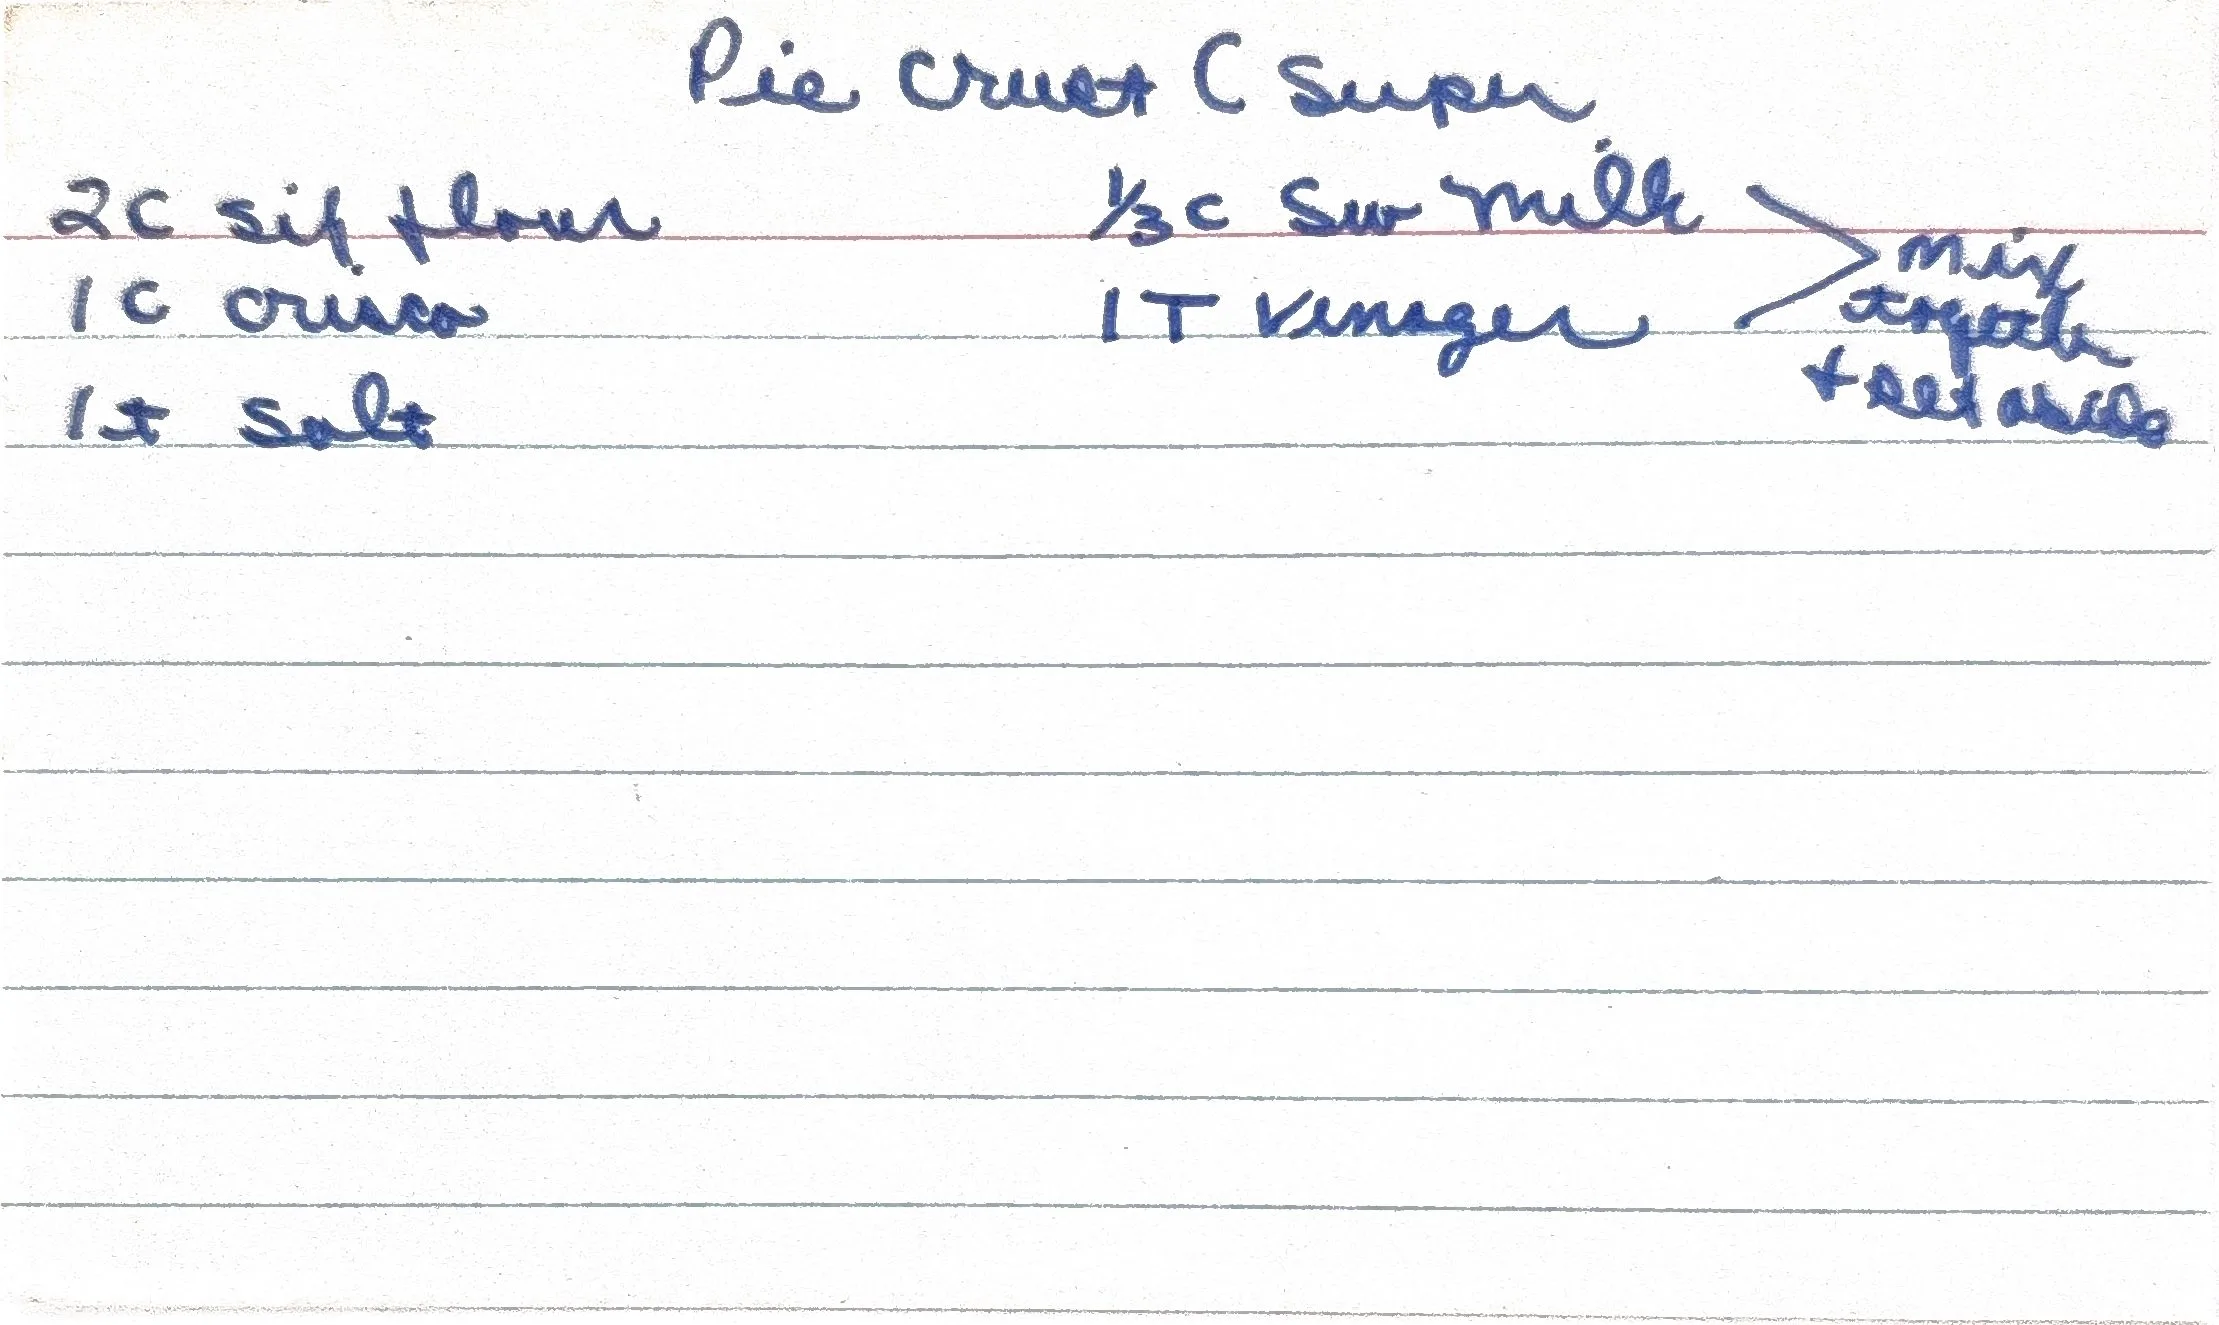 Pie Crust C Super
2 C sif flour
1 C crisco
1 t salt
1/3 c Sw milk
1 T Vinager
Mix
together
+ set aside